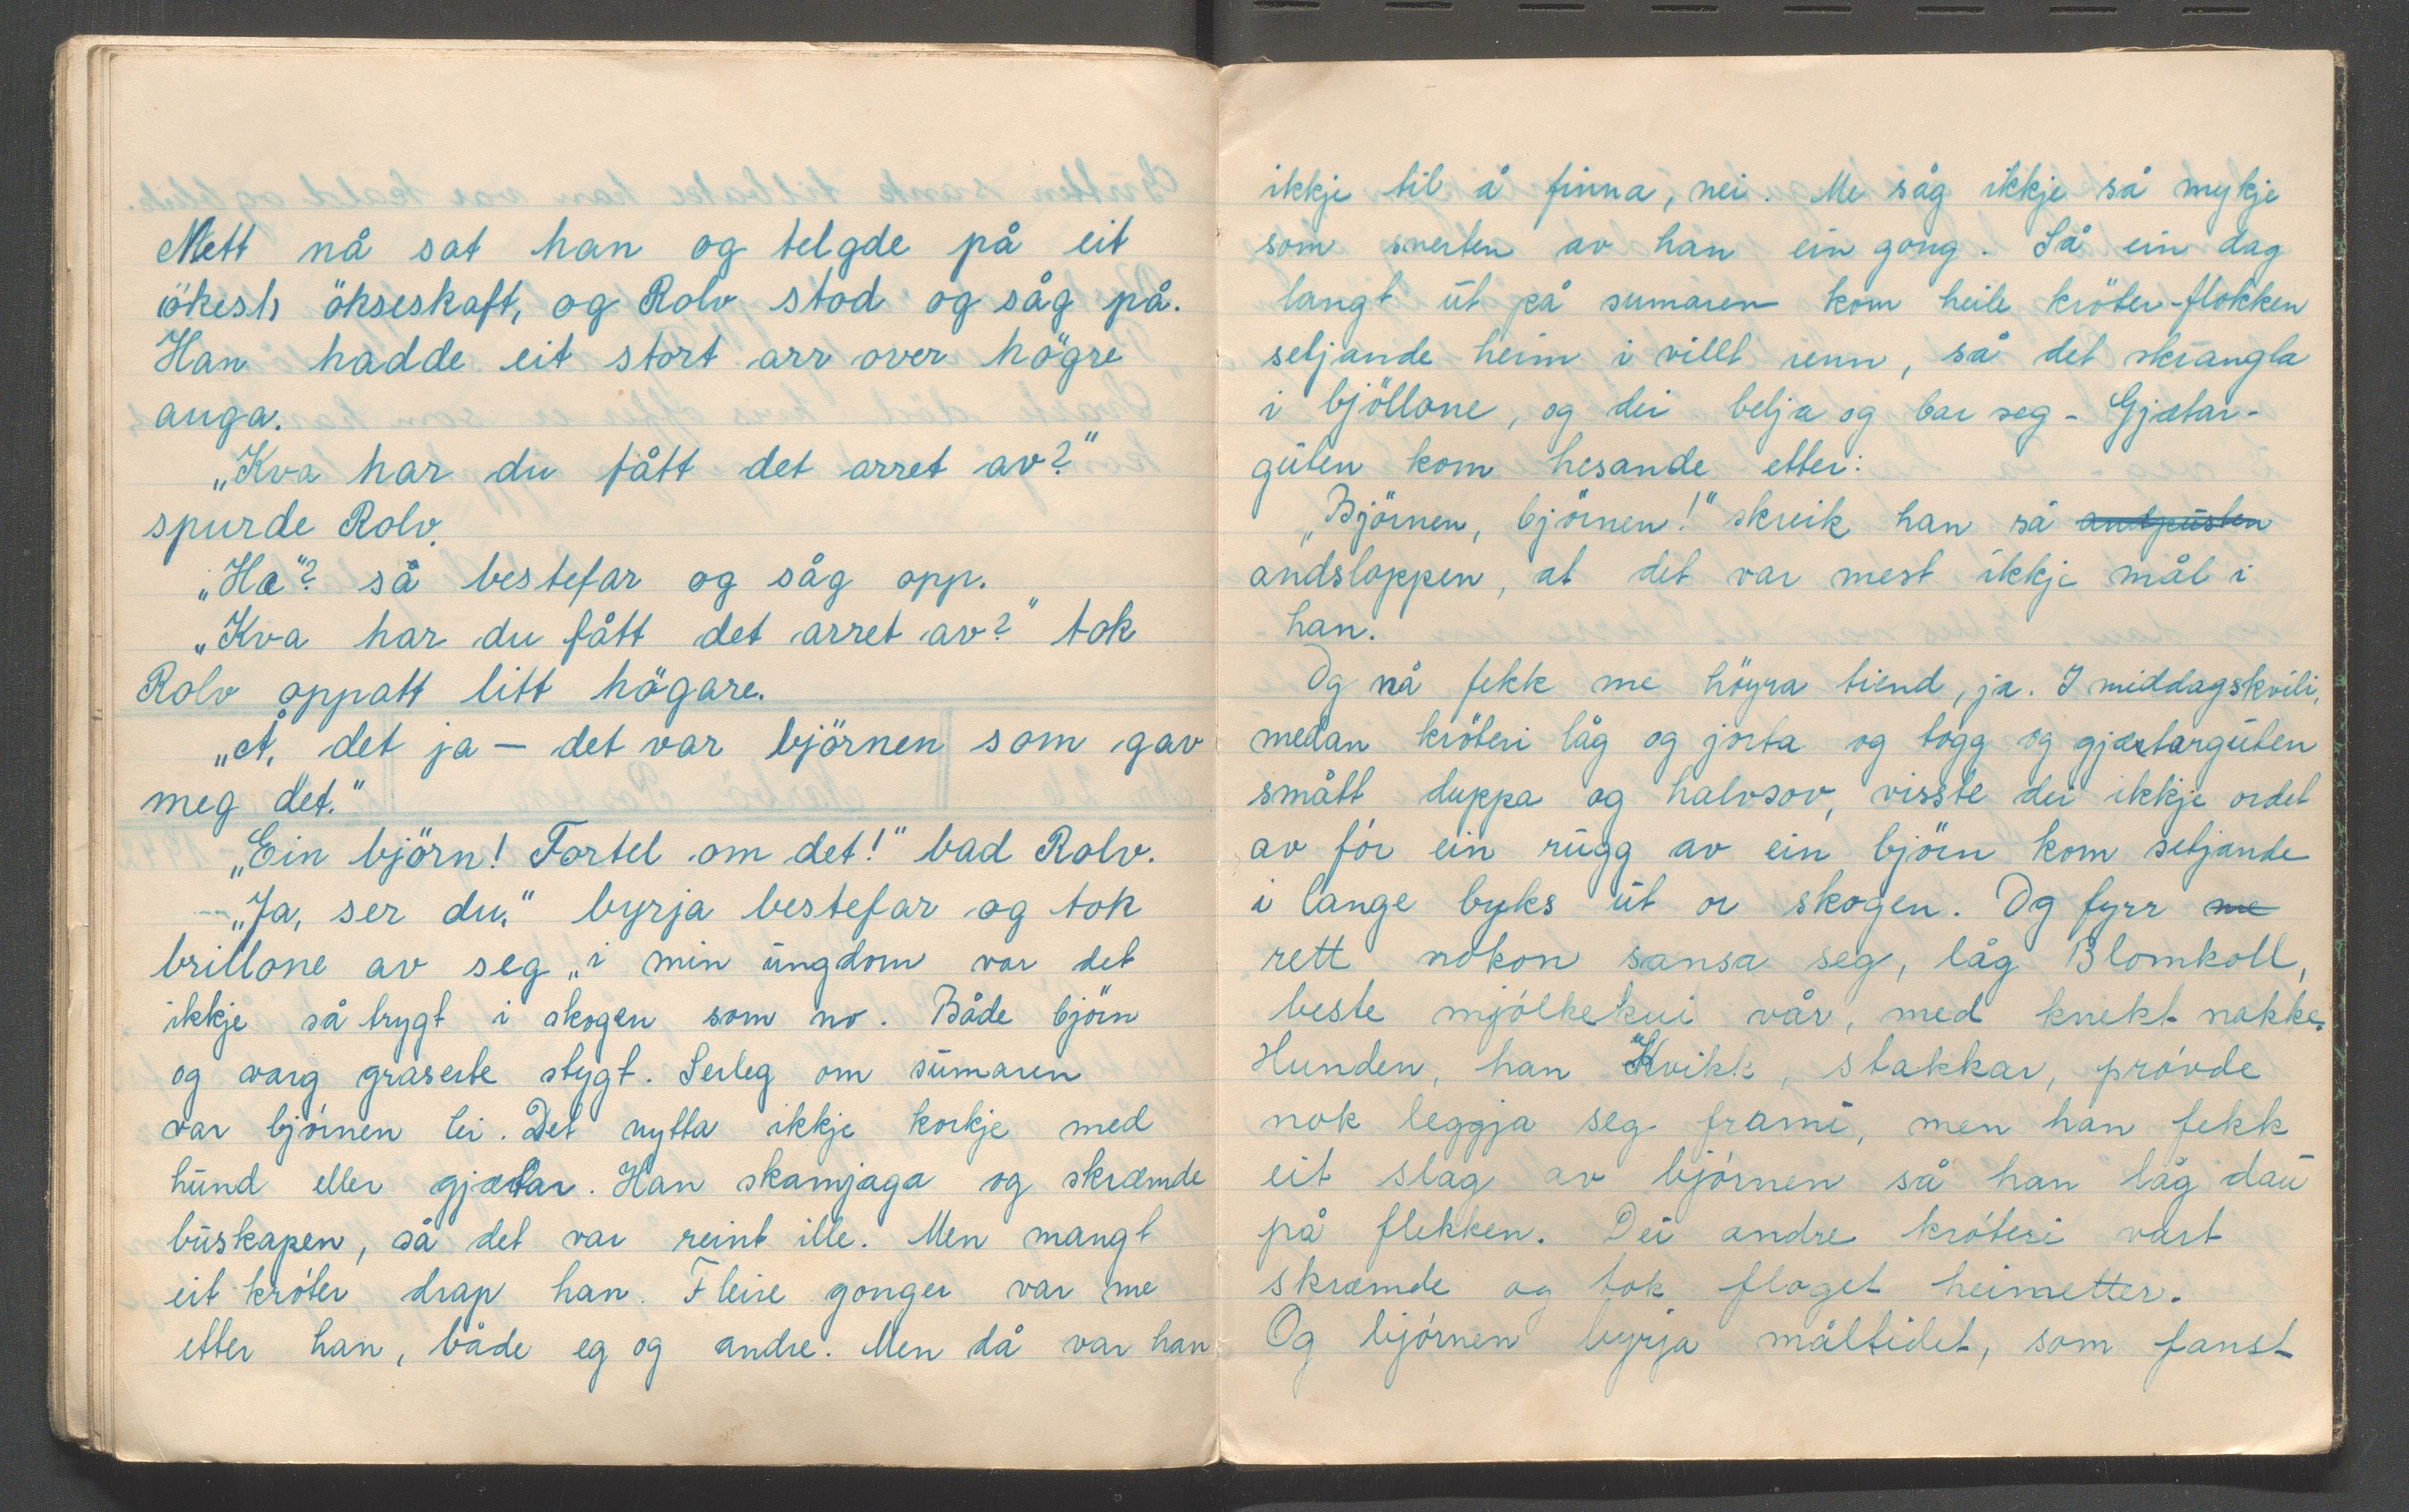 Nett nå sat han og telgde på eit
ökesh ökseskaft, og Rolv stod og såg på.
Han hadde eit stort arr over högre
auga.
„Kva har du fått det arret av?"
spurde Rolv.
„Ha"? så bestefar og såg opp.
„Kva har du fått det arret av?" tok
Rolv oppatt litt högare.
„Å, det ja — det var björnen som gav
meg det."
„Ein björn! Fortel om det!" bad Rolv.
„Ja, ser du," byrja bestefar og tok
brillone av seg „i min ungdom var det
ikkje så trygt i skogen som no. Både björn
og varg graserte stygt. Serleg om sumaren
var björnen lei. Det nytta ikkje korkje med
hund eller gjætar. Han skamjaga og skræmde
buskapen, så det var reint ille. Men mangt
eit kröter drap han. Fleire gonger var me
etter han, både eg og andre. Men då var han
ikkje til å finna, nei. Me såg ikkje så mykje
som snerten av han ein gong. Så ein dag
langt ut på sumaren kom heile kröter-flokken
setjande heim i villt renn, så det skrangla
i bjöllone, og dei belja og bar seg - Gjætar-
guten kom hesande etter:
„Björnen, björnen!" skreik han så andpusten
andsloppen, at det var mest ikkje mål i
han.
Og nå fekk me höyra tiend, ja. I middagskvili,
medan kröteri låg og jorta og togg og gjætarguten
smått duppa og halvsov, visste dei ikkje ordet
av för ein rugg av ein björn kom setjande
i lange byks ut or skogen. Og fyrr me
rett nokon sansa seg, låg Blomkoll,
beste mjölkekui vår, med knekt nakke.
Hunden, han "Kvikk, stakkar, prövde
nok leggja seg frami, men han fekk
eit slag av björnen så han låg dau
på flekken. Dei andre kröteri vart
skræmde og tok floget heimetter.
Og björnen byrja måltidet, som fanst